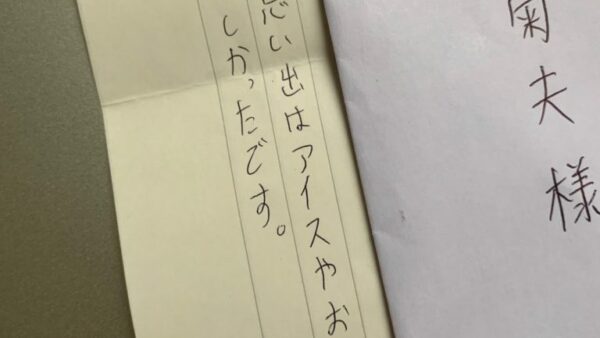 思い出はアイスやお
しかったです。
菊夫様